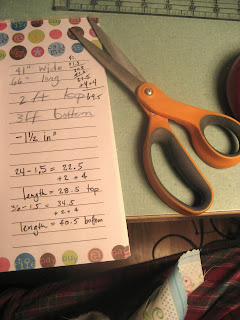 41" wide
66" long
2 ft top
3 ft bottom
-1½ in"
24 - 1.5 = 22.5
+2 +4
length = 28.5 top
36 - 1.5 = 34.5
+2 +4
length = 40.5 bottom